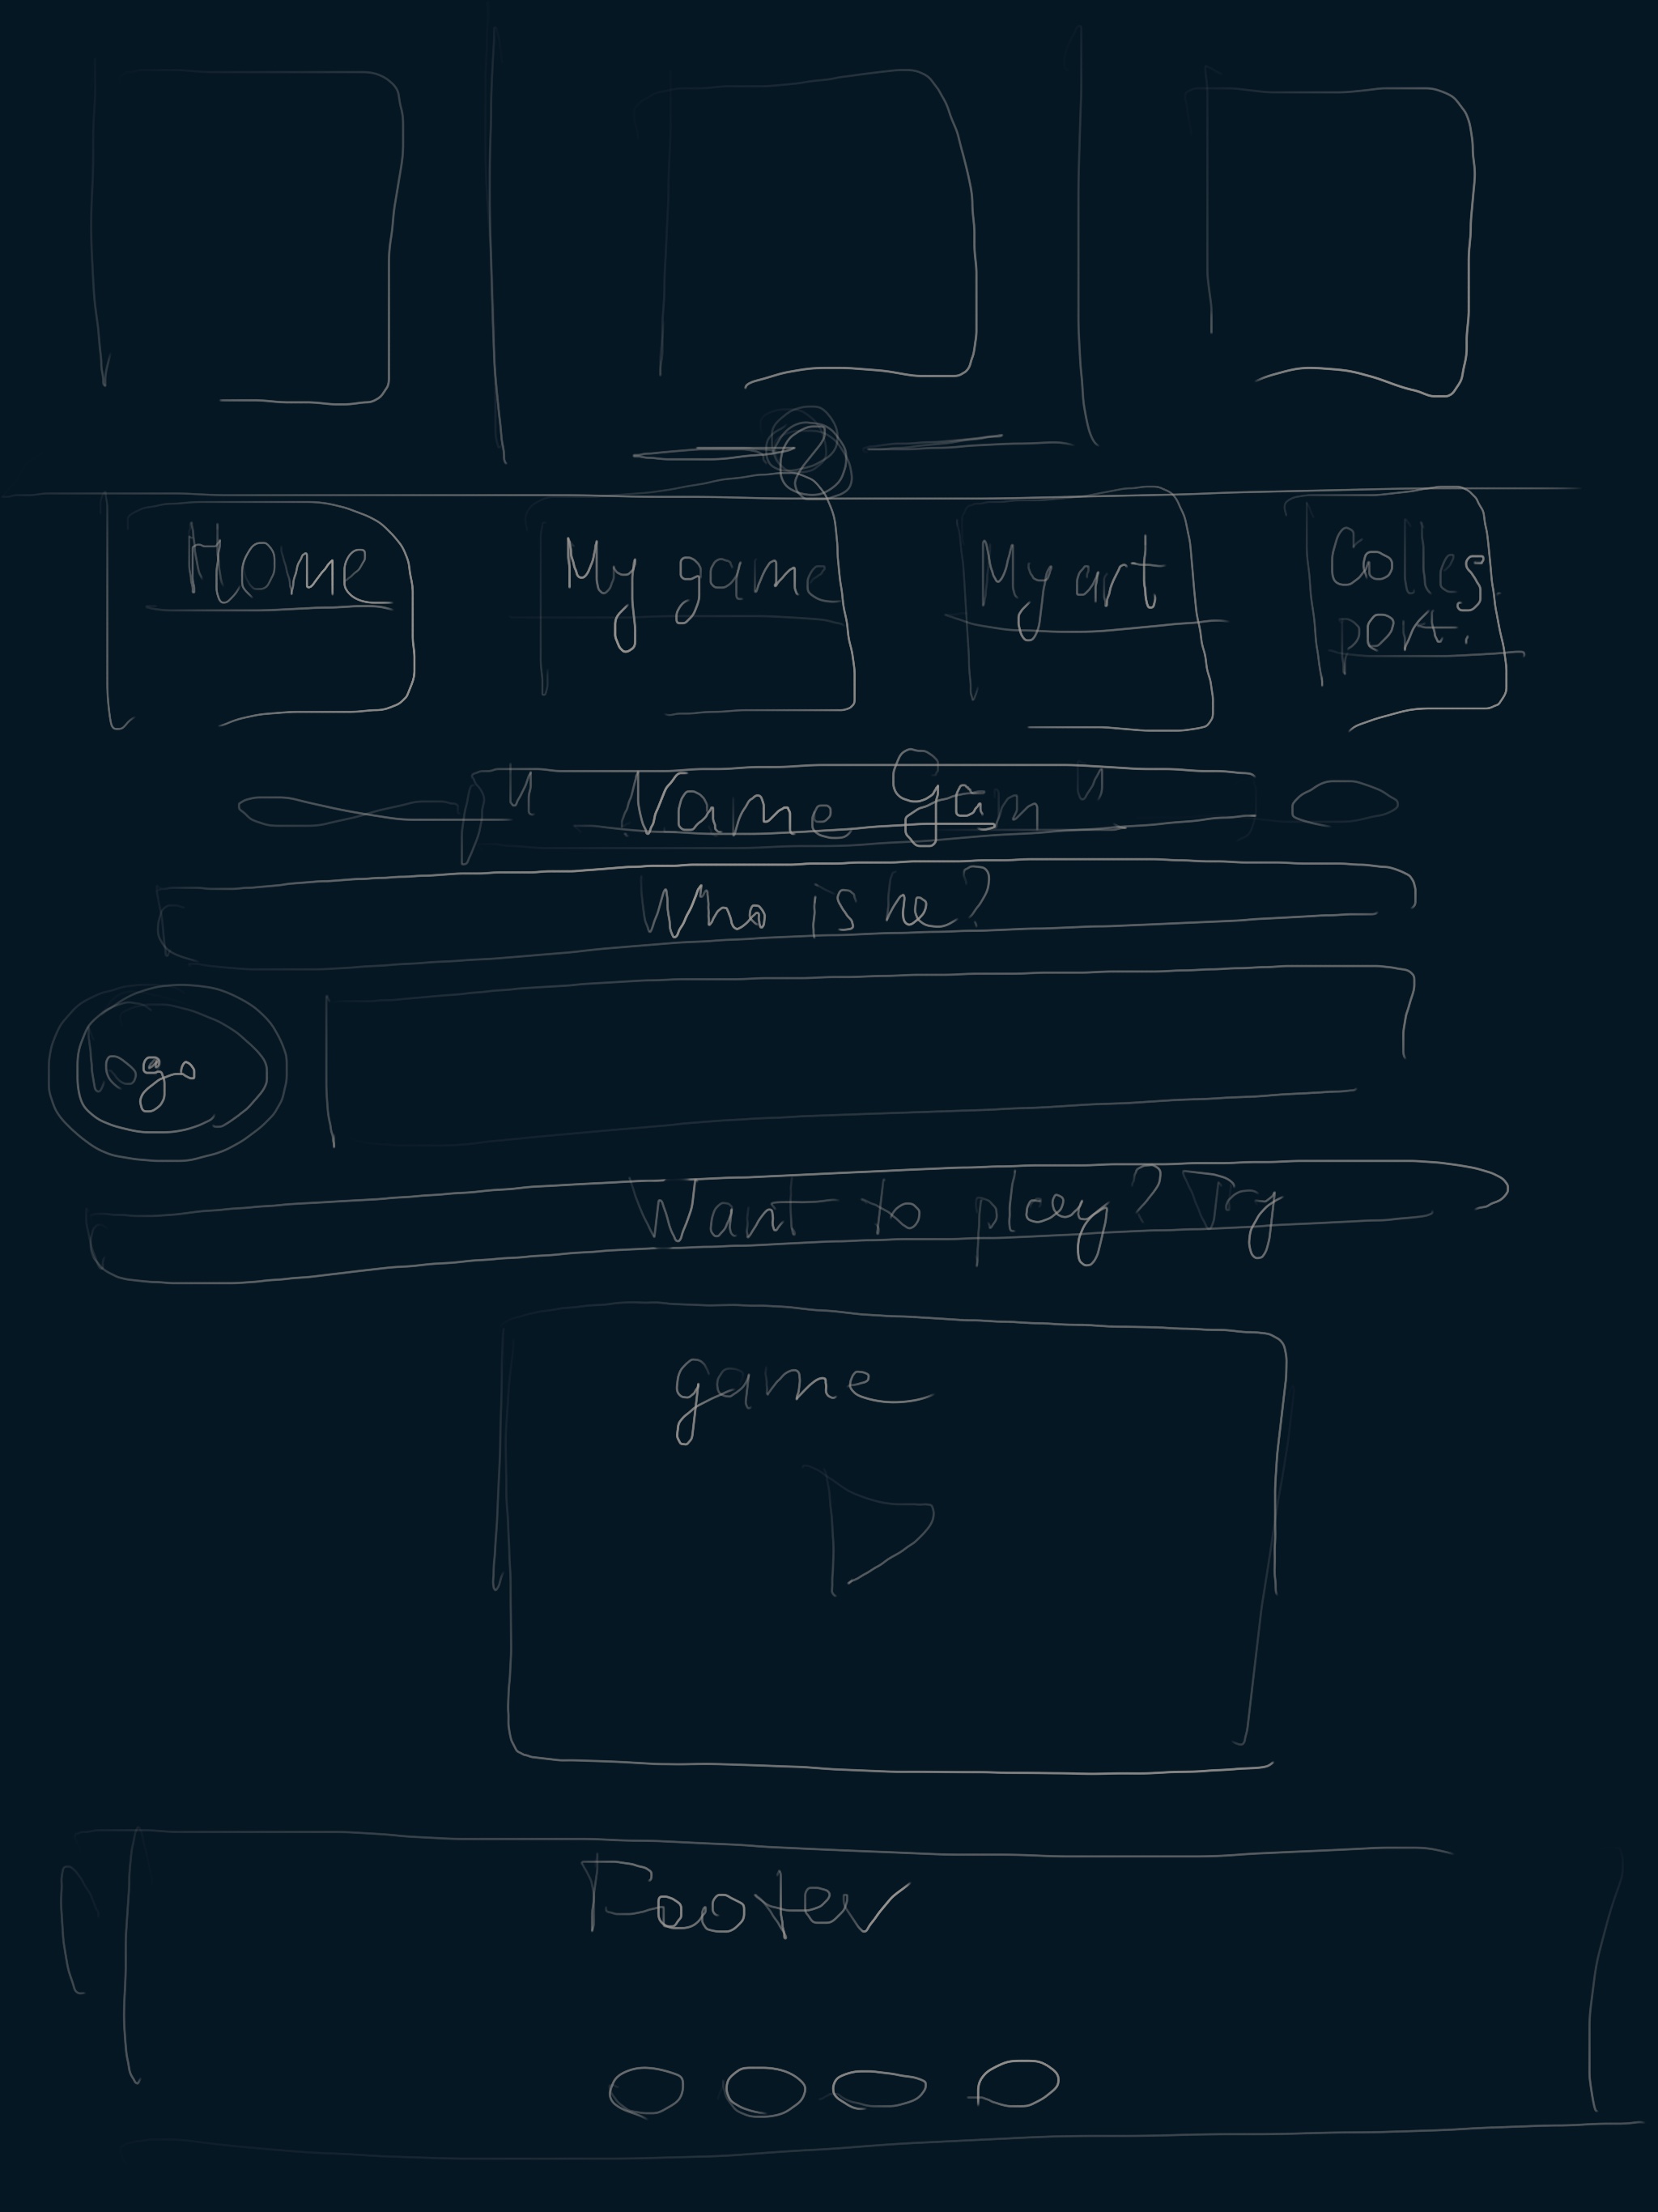 Home
My game
My art
Colleg.
port.
"Name Gam"
Who is he?
Logo
Want to play? Try
game
Footer